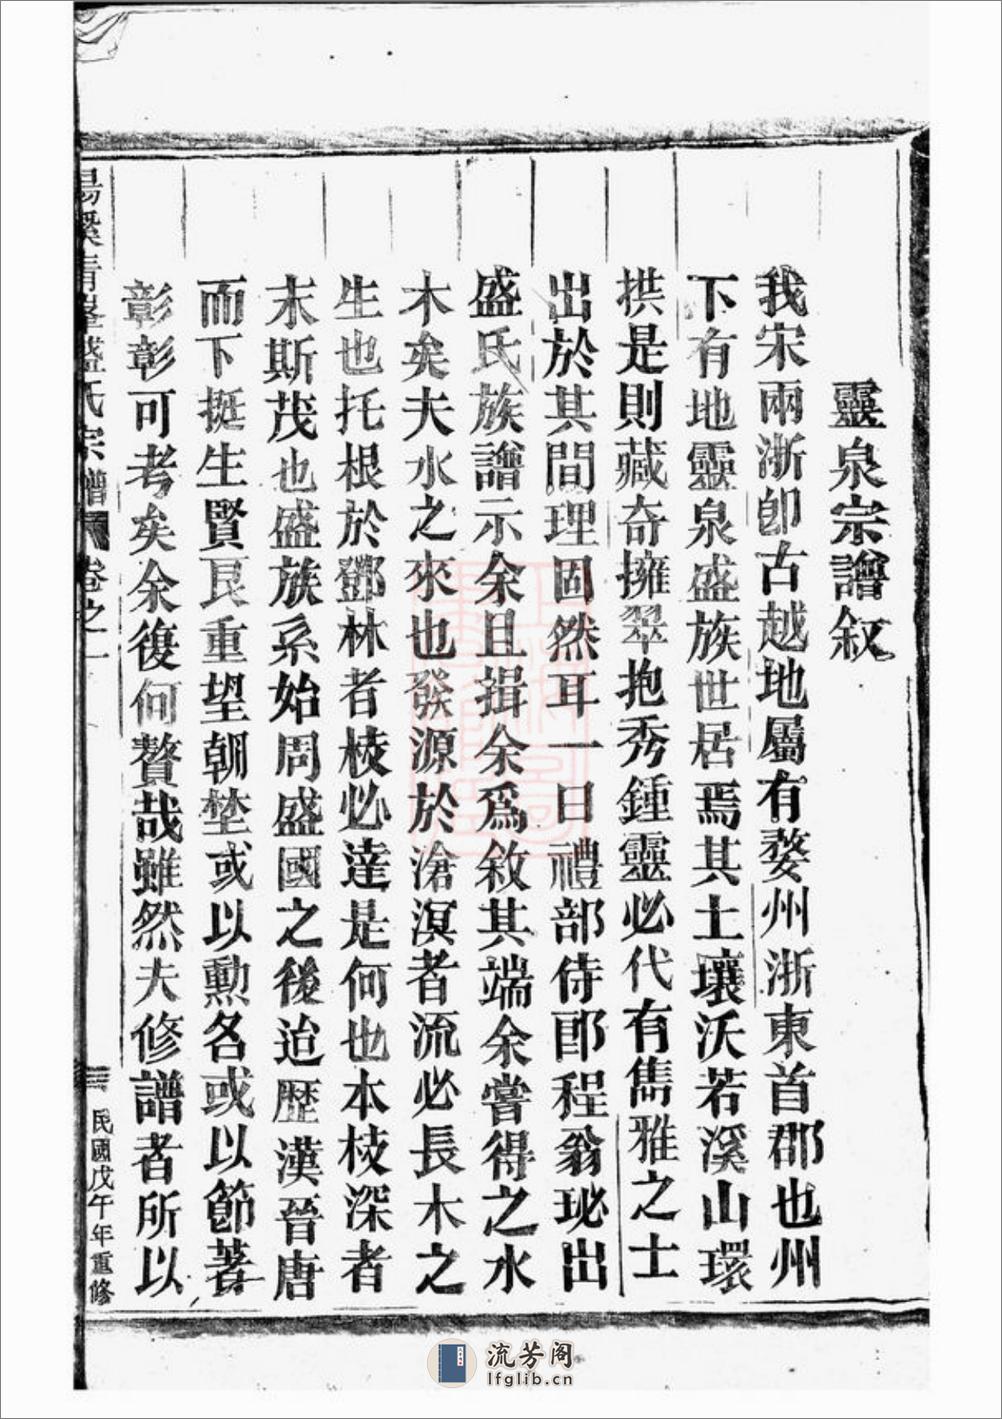 靈泉宗譜敘
我宋兩浙卽古越地屬有婺州浙東首郡也州
下有地靈泉盛族世居焉其土壤沃若溪山環
拱是則藏奇擁翠抱秀鍾靈必代有雋雅之士
出於其間理固然耳一日禮部侍郎程翁珌出
盛氏族譜示余且揖余爲敘其端余嘗得之水
木矣夫水之來也發源於滄溟者流必長木之
生也托根於鄧林者枝必達是何也本枝深者
末斯茂也盛族系始周盛國之後迨歷漢晉唐
而下挺生賢良重望朝埜或以勳名或以節著
彰彰可考矣余復何贅哉雖然夫修譜者所以
盛氏宗譜 卷之一
民國戊午年重修
流芳阁
lfglib.cn